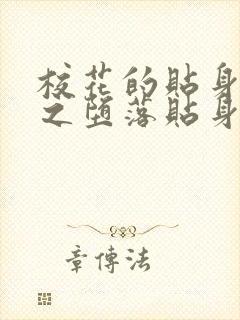 校花的貼身
之堕落貼身
章傳法